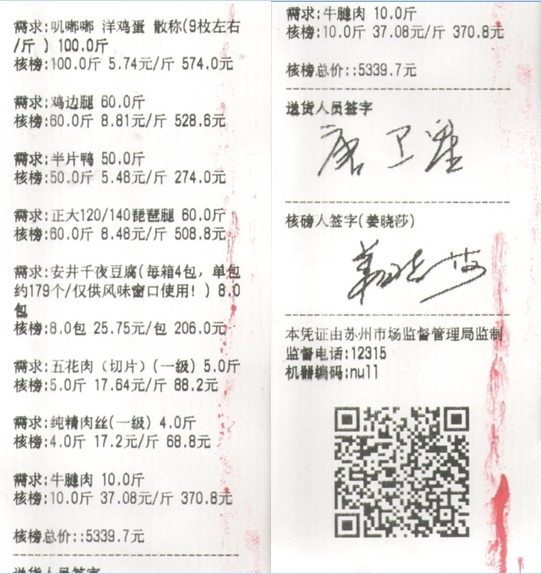 需求:叽嘟嘟 洋鸡蛋 散称(9枚左右
/斤 ) 100.0斤
核榜:100.0斤 5.74元/斤 574.0元
需求:鸡边腿 60.0斤
核榜:60.0斤 8.81元/斤 528.6元
需求:半片鸭 50.0斤
核榜:50.0斤 5.48元/斤 274.0元
需求:正大120/140琵琶腿 60.0斤
核榜:60.0斤 8.48元/斤 508.8元
需求:安井千夜豆腐(每箱4包, 单包
约179个/仅供风味窗口使用! ) 8.0
包
核榜:8.0包 25.75元/包 206.0元
需求:五花肉 (切片) (一级) 5.0斤
核榜:5.0斤 17.64元/斤 88.2元
需求:纯精肉丝(一级) 4.0斤
核榜:4.0斤 17.2元/斤 68.8元
需求:牛腱肉 10.0斤
核榜:10.0斤 37.08元/斤 370.8元
核榜总价::5339.7元
送货人员签字
需求:牛腱肉 10.0斤
核榜:10.0斤 37.08元/斤 370.8元
核榜总价::5339.7元
送货人员签字
核磅人签字(姜晓莎)
本凭证由苏州市场监督管理局监制
监督电话:12315
机器编码:null